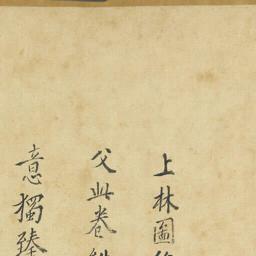 上林圖
父此卷
意獨臻